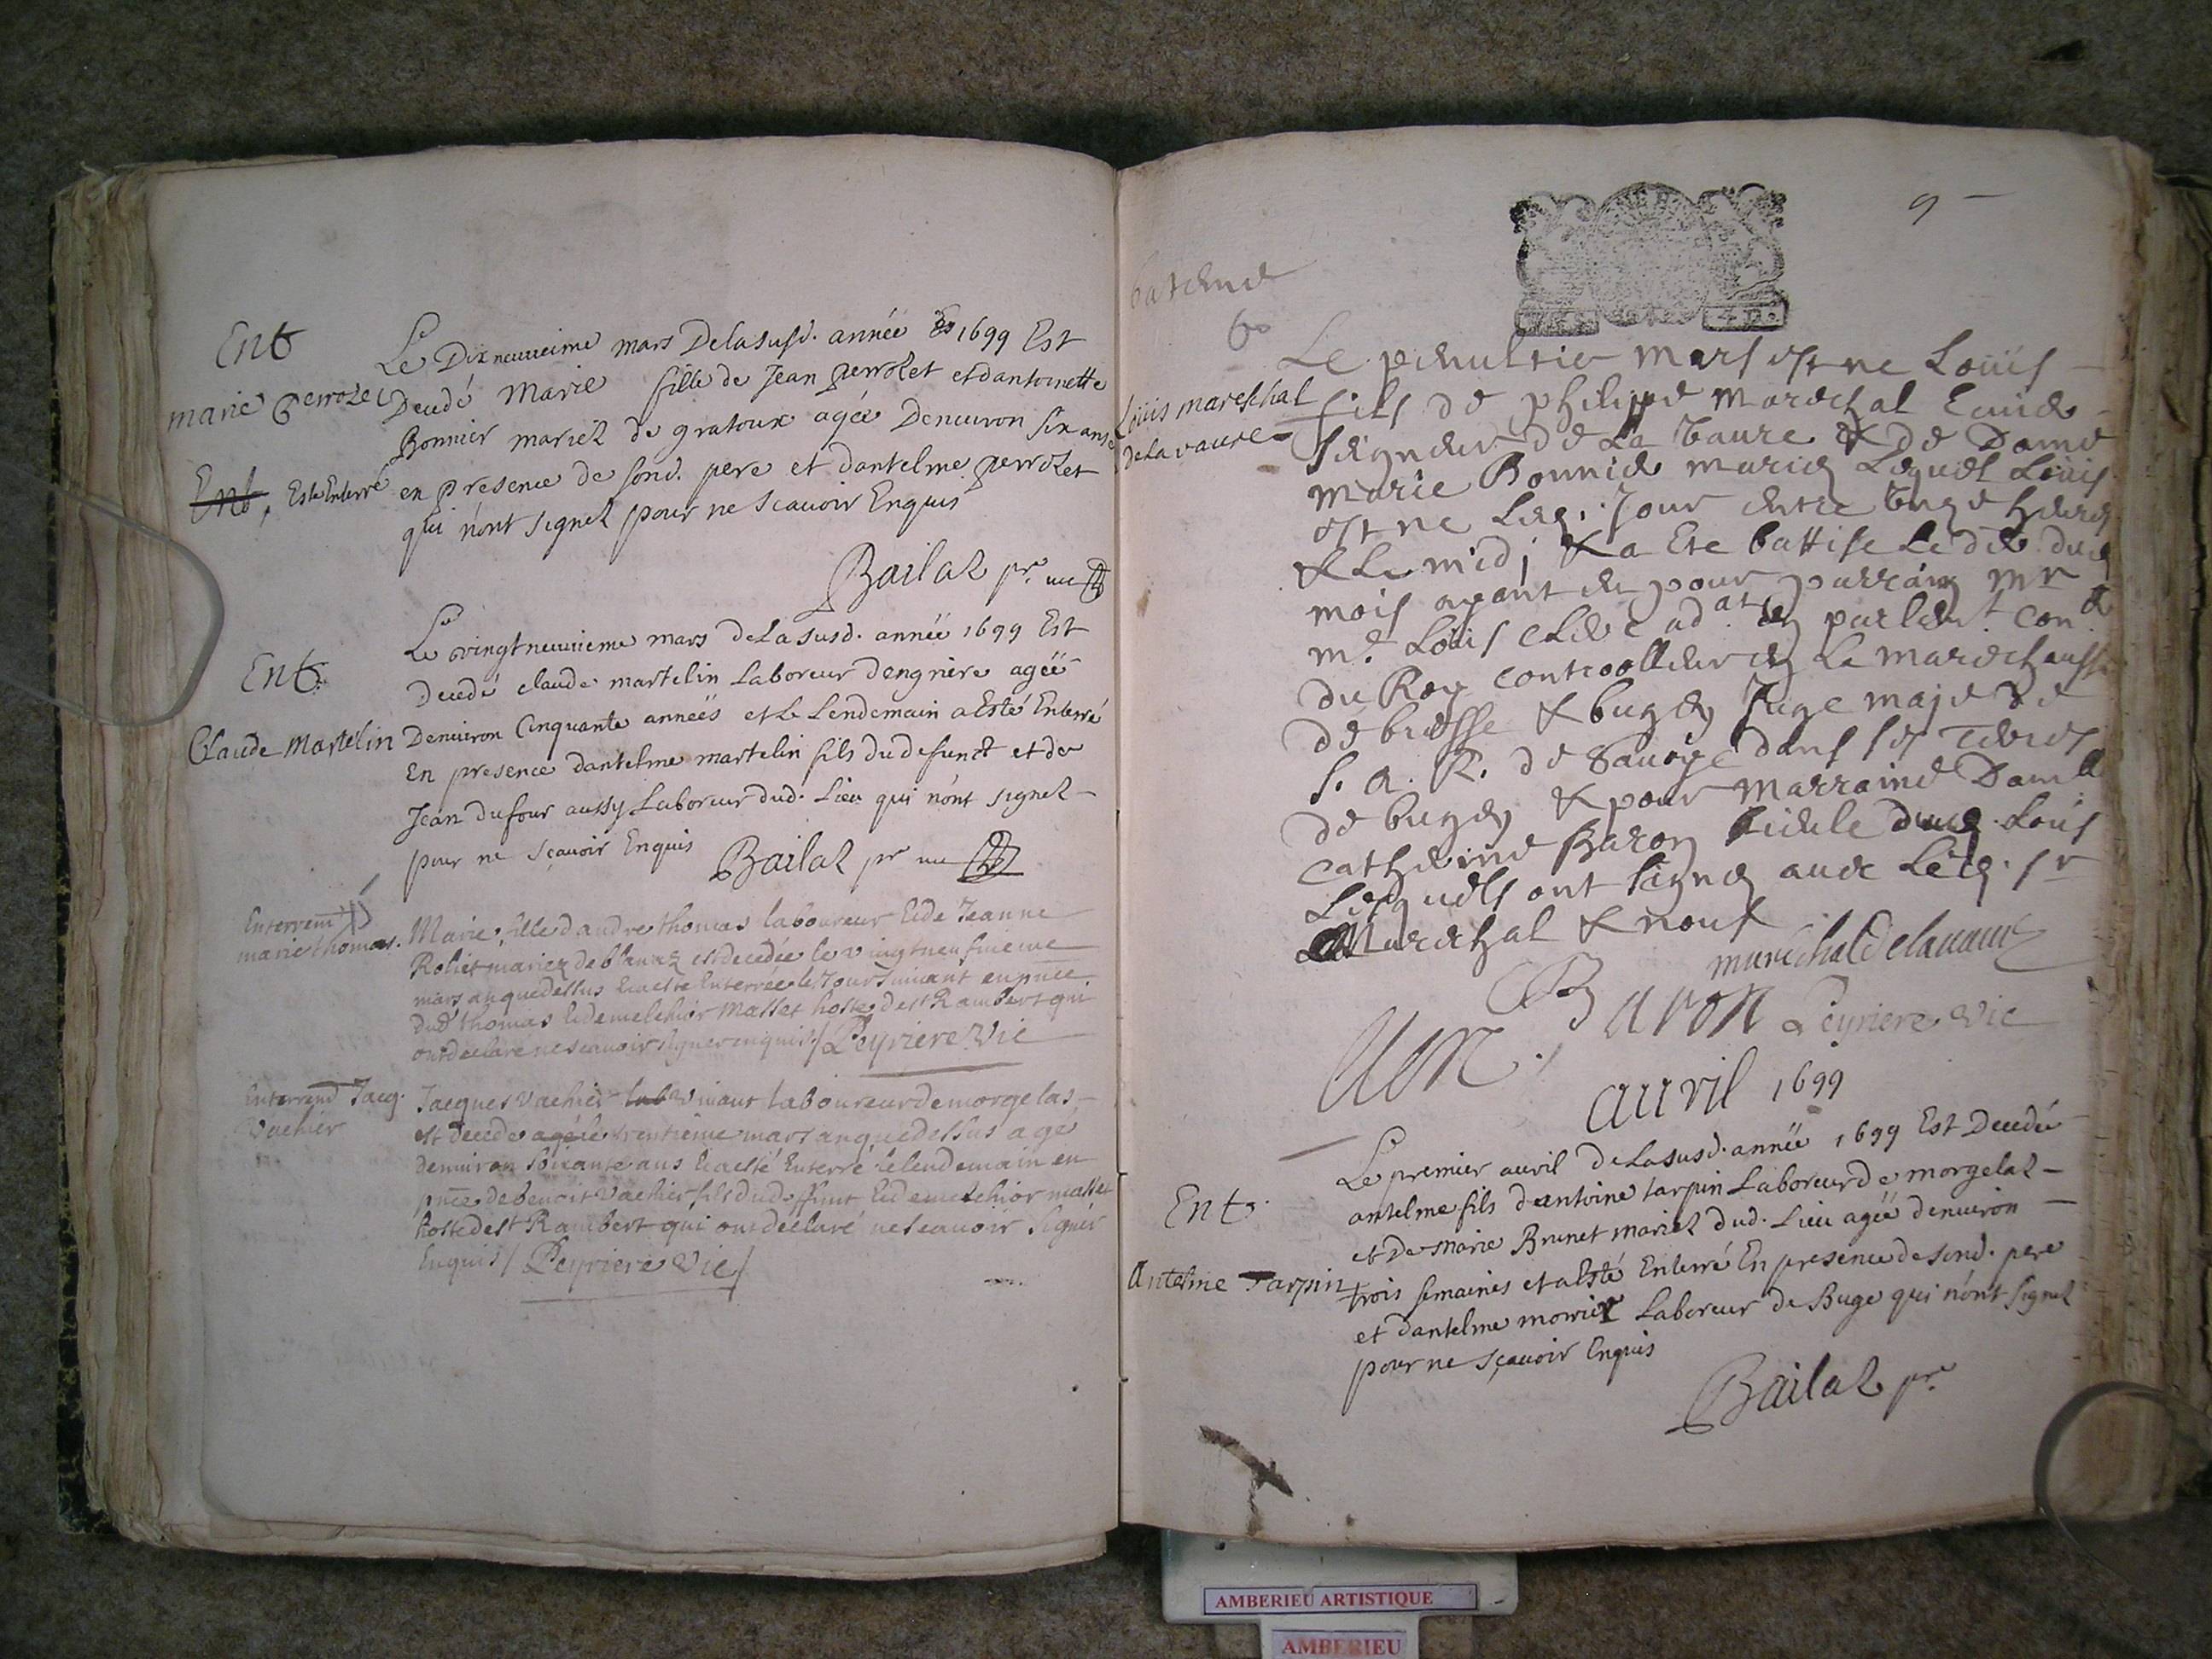 Ent
marie perrozet
Le Dixneuvieime mars Delasusd. année 1699 Est
Decedé Marie fille de Jean perrozet et dantoinette
Bonnier mariez de gratoux agée Denuiron six ans
Ent, Este Enterré en presence de sond. pere et dantelme perrozet
qui n'ont signez pour ne scauoir Enquis
Bailaz pr. uic
Ent.
Claude Martelin
Le vingtneuuieme mars de La susd. année 1699 Est
decedé claude martelin Laboreur dengriere agéé
Denuiron Cinquante années et Le Lendemain a Esté Enterré
En presence dantelme martelin fils du defunct et de
Jean dufour aussy Laboreur dud. Lieu qui n'ont signez
pour ne sçauoir Enquis Bailaz pr uic
Enterrem
marie thomas.
Marie, fille d andre thomas laboureur & de Jeanne
Roliet mariez de blanaz est decedée le vingtneufuieme
mars an que dessus & a esté Enterrée le Jour suiuant en pnce
dud thomas & de melchior Masset hoste de st Rambert qui
ont declaré ne scauoir signer enquis / Peyriere Vic
Enterrem d Jacq.
Vachier
Jacques Vachier viuant laboureur de morgelas
est decedé agé le trentieme mars an que dessus agé
denuiron soixante ans & a esté Enterré le lendemain en
pnce de benoit Vachier fils dud. & de melchior masset
hoste de st Rambert qui ont declaré ne scauoir signer
Enquis / Peyriere Vic /
9
bateme
Louis mareschal
de La vaure
Le penultie mars est ne Loüis
fils de philippe marechal
seigneur de La Vaure & de Dame
marie Bonnie mariez Lequel Loüis
est ne Led. Jour entre
& Le midi & a Ete battise Le dit dud
mois ayant eu pour parrain mr
me. Loüis Clerc adat. en parlemt. con
du Roy controolleur en La marechaussé
de bresse & bugey Juge maje de
S. A. R. de Sauoye dans ses Terres
de bugey & pour marraine Damlle
catherine Baron dud. Loüis
Lesquels ont signez auec Led. sr
Marechal & nous
marechal de lauaure
Baron Peyriere Vic
auuril 1699
Ent.
Antelme Tarpin
Le premier auuril deLasusd. année 1699 Est Decedé
antelme fils dantoine tarpin Laboreur de morgelaz
et De marie Brunet mariez dud. Lieu agéé denuiron
trois semaines et a Esté Enterré En presence de sond. pere
et dantelme morrier Laboreur de Buge qui n'ont signez
pour ne sçauoir Enquis
Bailaz pr.
AMBERIEU ARTISTIQUE
AMBERIEU